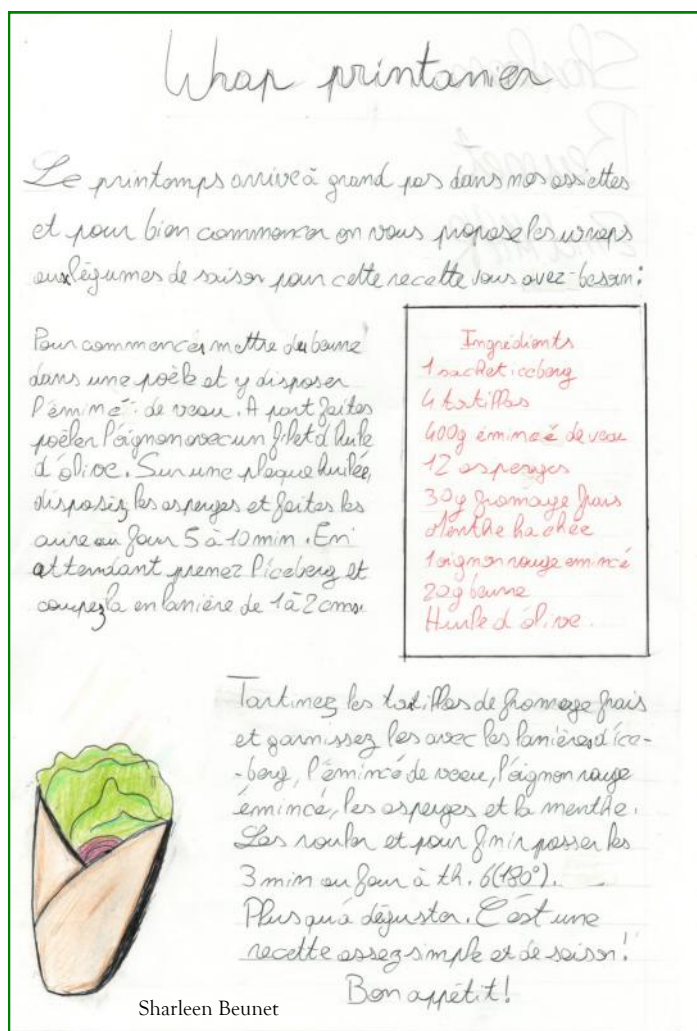 Wrap printanier
Le printemps arrive à grand pas dans nos assiettes
et pour bien commencer on vous propose les wraps
aux légumes de saison pour cette recette vous avez besoin :
Pour commencer mettre du beurre
dans une poêle et y disposer
l'éminé de veau. A part faites
poêler l'oignon avec un filet d'huile
d'olive. Sur une plaque huilée,
disposez les asperges et faites les
cuire au four 5 à 10 min. En
attendant prenez l'iceberg et
coupez la en lanière de 1 à 2 cms.
Ingrédients
1 sachet iceberg
4 tortillas
400g émincé de veau
12 asperges
30g fromage frais
Menthe hachée
1 oignon rouge émincé
20g beurre
Huile d'olive.
Tartinez les tortillas de fromage frais
et garnissez les avec les lanières d'ice-
-berg, l'émincé de veau, l'oignon rouge
émincé, les asperges et la menthe.
Les rouler et pour finir passer les
3 min au four à th. 6(180°).
Plus qu'à déguster. C'est une
recette assez simple et de saison !
Bon appétit !
Sharleen Beunet